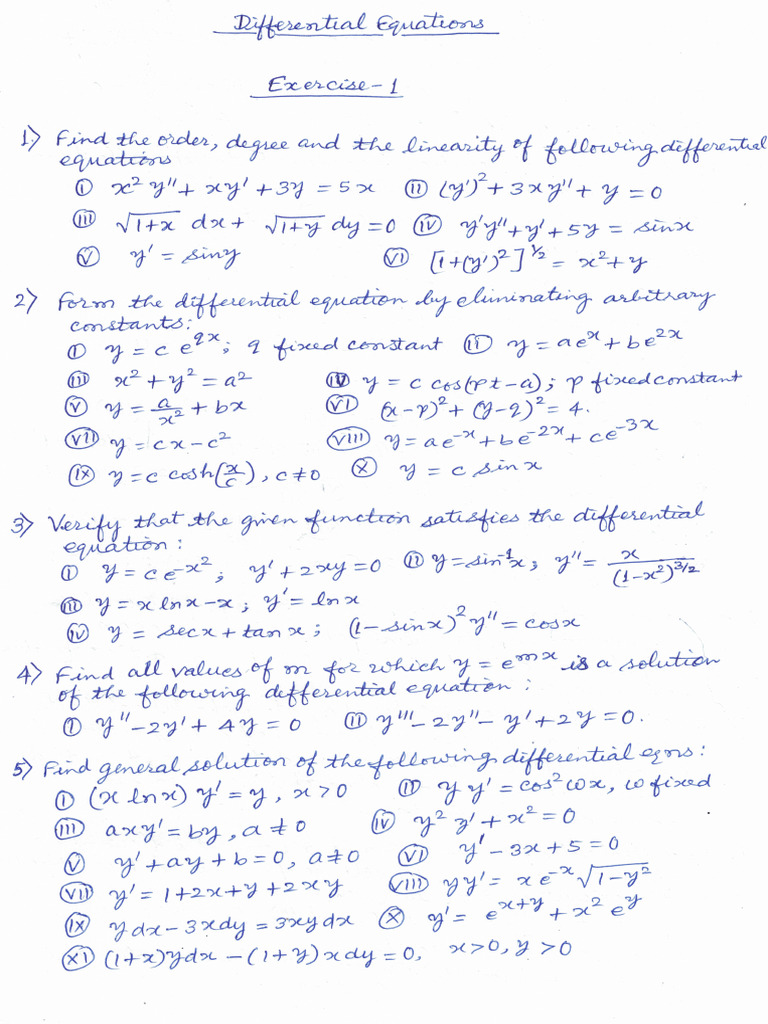 Differential Equations
Exercise-1
1) Find the order, degree and the linearity of following differential
equations
(i) x² y'' + xy' + 3y = 5x (ii) (y')² + 3xy'' + y = 0
(iii) √(1+x) dx + √(1+y) dy = 0 (iv) y'y'' + y' + 5y = sinx
(v) y' = siny (vi) [1+(y')²]^(1/2) = x² + y
2) Form the differential equation by eliminating arbitrary
constants:
(i) y = c e^(qx); q fixed constant (ii) y = ae^x + be^(2x)
(iii) x² + y² = a² (iv) y = c cos(pt-a); p fixed constant
(v) y = a/x² + bx (vi) (x-p)² + (y-q)² = 4.
(vii) y = cx - c² (viii) y = ae^(-x) + be^(-2x) + ce^(-3x)
(ix) y = c cosh(x/c), c≠0 (x) y = c sinx
3) Verify that the given function satisfies the differential
equation:
(i) y = ce^(-x²); y' + 2xy = 0 (ii) y = sin⁻¹x; y'' = x/(1-x²)^(3/2)
(iii) y = x lnx - x; y' = lnx
(iv) y = secx + tanx; (1-sinx)² y'' = cosx
4) Find all values of m for which y = e^(mx) is a solution
of the following differential equation:
(i) y'' - 2y' + 4y = 0 (ii) y''' - 2y'' - y' + 2y = 0.
5) Find general solution of the following differential eqns:
(i) (x lnx) y' = y, x > 0 (ii) y y' = cos² wx, w fixed
(iii) axy' = by, a ≠ 0 (iv) y² y' + x² = 0
(v) y' + ay + b = 0, a≠0 (vi) y' - 3x + 5 = 0
(vii) y' = 1 + 2x + y + 2xy (viii) yy' = x e^(-x) √(1-y²)
(ix) ydx - 3xdy = 3xydx (x) y' = e^(x+y) + x² e^y
(xi) (1+x)ydx - (1+y)xdy = 0, x>0, y>0